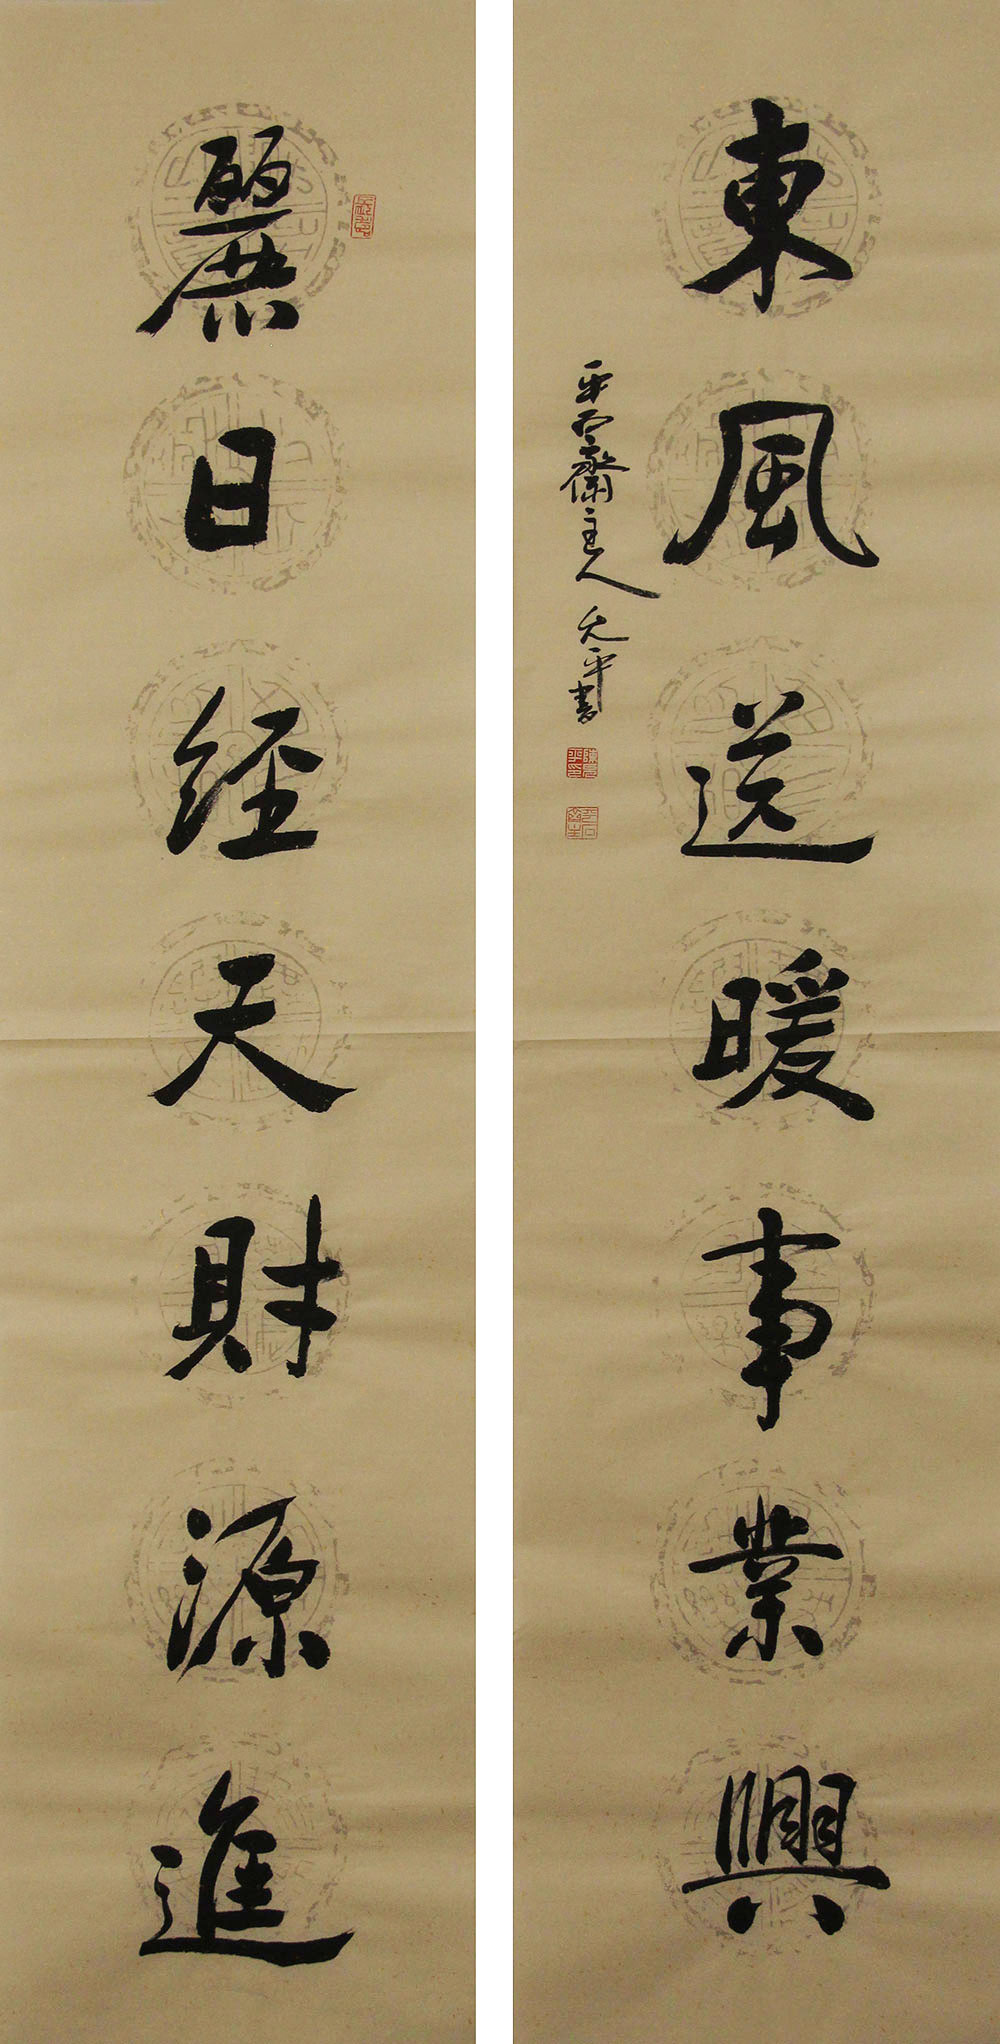 麗日经天財源進
東風送暖事業興
平石齋主人 平書